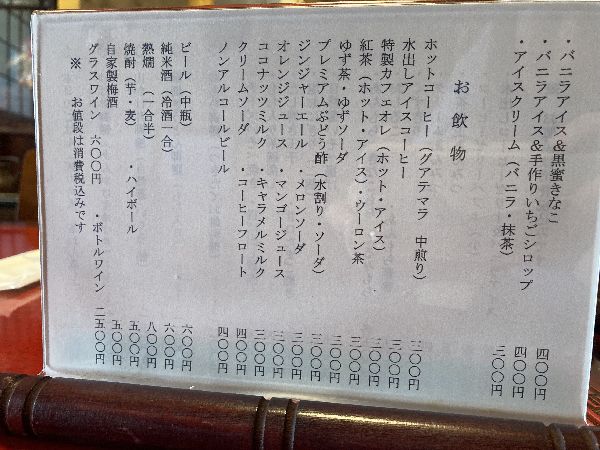 ・バニラアイス&黒蜜きなこ 四〇〇円
・バニラアイス&手作りいちごシロップ 四〇〇円
・アイスクリーム(バニラ・抹茶) 三〇〇円
お飲物
ホットコーヒー(グアテマラ 中煎り) 三〇〇円
水出しアイスコーヒー 三〇〇円
特製カフェオレ(ホット・アイス) 三〇〇円
紅茶(ホット・アイス)・ウーロン茶 三〇〇円
ゆず茶・ゆずソーダ 三〇〇円
プレミアムぶどう酢(水割り・ソーダ) 三〇〇円
ジンジャーエール ・メロンソーダ 三〇〇円
オレンジジュース ・マンゴージュース 三〇〇円
ココナッツミルク ・キャラメルミルク 三〇〇円
クリームソーダ ・コーヒーフロート 四〇〇円
ノンアルコールビール 四〇〇円
ビール(中瓶) 六〇〇円
純米酒(冷酒一合) 六〇〇円
熱燗 (一合半) 八〇〇円
焼酎(芋・麦) ・ハイボール 五〇〇円
自家製梅酒 五〇〇円
グラスワイン 六〇〇円 ・ボトルワイン 二五〇〇円
※ お値段は消費税込みです